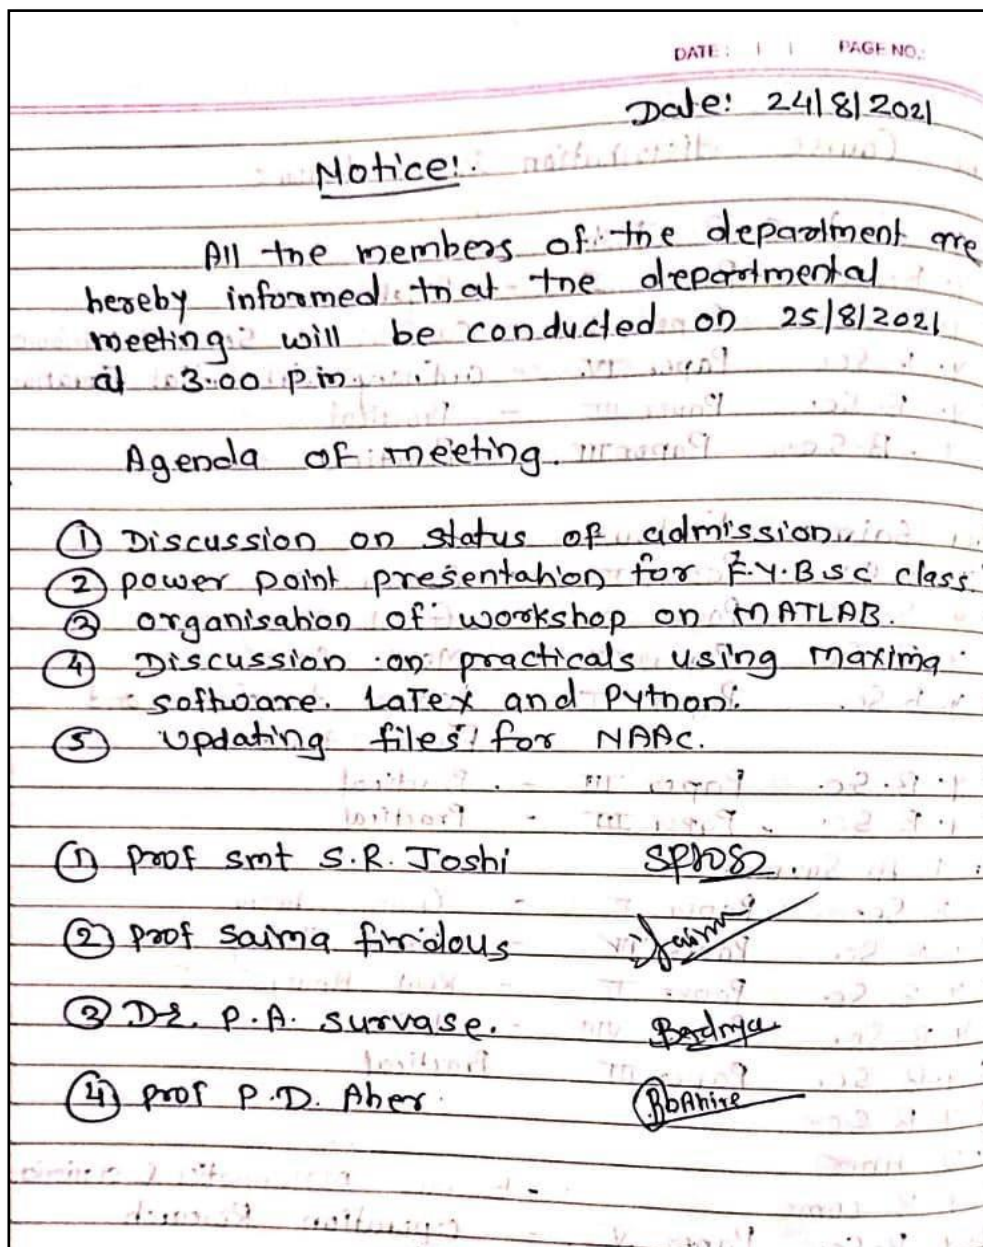 DATE: | | PAGE NO.:
Date: 24/8/2021
Notice:
All the members of the department are
hereby informed that the departmental
meeting will be conducted on 25/8/2021
at 3.00 p.m.
Agenda of meeting.
① Discussion on status of admission.
② power point presentation for F.Y.BSC class
③ organisation of workshop on MATLAB.
④ Discussion on practicals using maxima
software. LaTex and Python.
⑤ updating files for NAAC.
① Prof smt S.R. Joshi
② Prof Saima firdous
③ Dr. P.A. Survase.
④ Prof P.D. Aher.